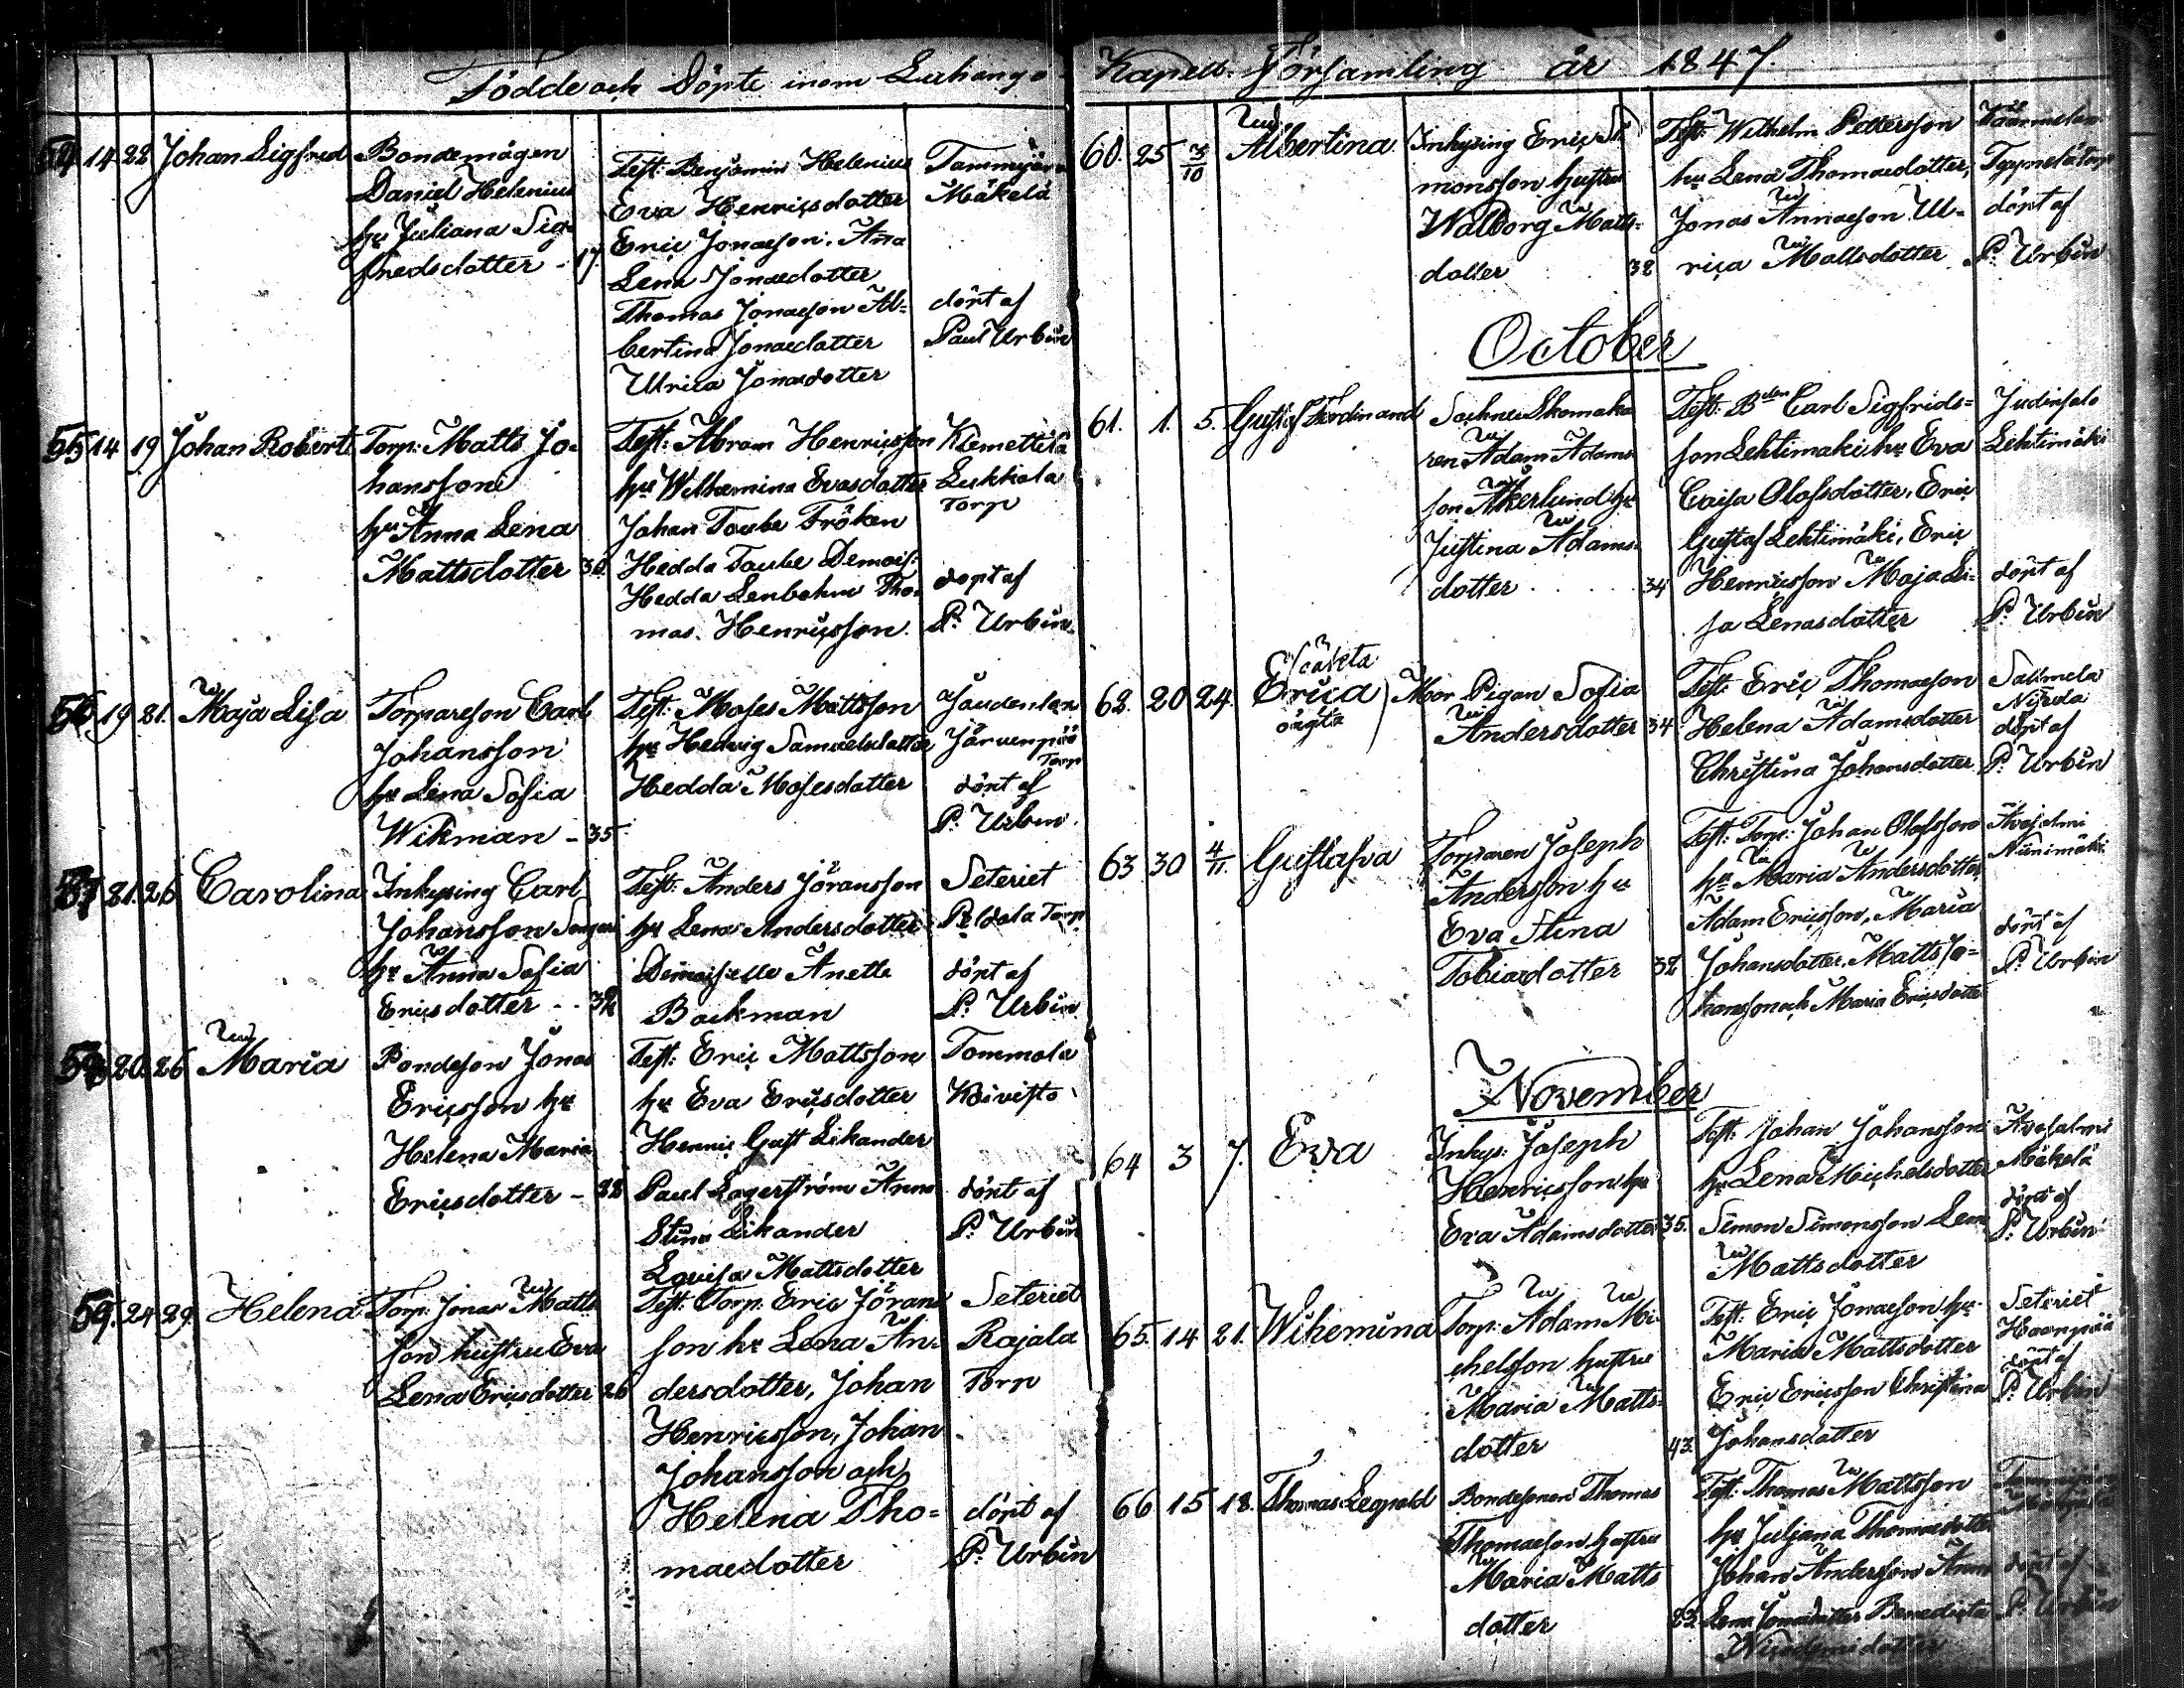 Födde och Döpte inom Luhango
54 14 22 Johan Sigfred
Bondemågen
Daniel Helenius
hu Juliana Sig=
fredsdotter - 17
Test: Benjamin Helenius
Eva Henricsdotter
Eric Jonasson, Ana
Lena Jonasdotter
Thomas Jonasson Al=
bertina Jonasdotter
Ulrica Jonasdotter
Tammijärvi
Mäkelä
döpt af
Paul Urbin
55 14 19 Johan Robert
Torp: Matts Jo-
hansson
hu Anna Lena
Mattsdotter 36
Test: Abram Henricsson
hu Wilhemina Evasdotter
Johan Taube Fröken
Hedda Taube Demois:
Hedda Lenbohm Tho-
mas Henricsson
Klemettilä
Lukkola
Torp
döpt af
P: Urbin
56 19 21. Maja Lisa
Torpareson Carl
Johansson
hu Lena Sofia
Wikman - 35
Test: Moses Mattsson
hu Hedvig Samuelsdotter
Hedda Mosesdotter
Järvenpää
Torp
döpt af
P: Urbin
57 21. 26 Carolina
Inhysing Carl
Johansson
hu Anna Sofia
Ericsdotter - - 32
Test: Anders Jöransson
hu Lena Andersdotter
Demoiselle Anette
Backman
Seteriet
Peldola Torp
döpt af
P: Urbin
58 20. 26 Maria
Bondeson Jonas
Ericsson hu
Helena Maria
Ericsdotter - 22
Test: Eric Mattsson
hu Eva Ericsdotter
Henric Gust Likander
Paul Lagerström Anna
Stina Likander
Lovisa Mattsdotter
Tommola
Koivisto
döpt af
P: Urbin
59. 24 29. Helena
Torp: Jonas Matts
son hustru Eva
Lena Ericsdotter 26
Test: Torp: Eric Jörans
son hu Lena An-
dersdotter, Johan
Henricsson, Johan
Johansson och
Helena Tho=
masdotter
Seteriet
Rajala
Torp
döpt af
P: Urbin
Kapell-Församling år 1847.
60. 25 3/10 Albertina
Inhysing Eric Si
monsson hustru
Walborg Matts=
dotter 32
Test: Wilhelm Pettersson
hu Lena Thomasdotter,
Jonas Annasson Ul-
rica Mattsdotter
döpt af
P: Urbin
October
61. 1. 5. Gustaf Ferdinand
Sockne Skomaka
ren Adam Adams
son Åkerlund hu
Justina Adams-
dotter 34
Test: Bden Carl Sigfrids=
son Lehtimäki hu Eva
Caisa Olofsdotter, Eric
Gustaf Lehtimäki, Eric
Henricsson Maja Li=
sa Lenasdotter
Judinsalo
Lehtimäki
döpt af
P: Urbin
62. 20 24. Erica
oägta
Mor Pigan Sofia
Andersdotter 34
Test: Eric Thomasson
Helena Adamsdotter
Christina Johansdotter
Salmela
döpt af
P: Urbin
63. 30 4/11. Gustafva
Torparen Joseph
Andersson hu
Eva Stina
Tobiasdotter 32
Test: Torp: Johan Olofsson
hu Maria Andersdotter
Adam Ericsson, Maria
Johansdotter. Matts Jo=
hansson och Maria Ericsdotter
Avosalmi
Niinimäki
döpt af
P: Urbin
November
64 3 7. Eva
Inhys: Joseph
Henricsson hu
Eva Adamsdotter 35.
Test: Johan Johansson
hu Lena Michelsdotter
Simon Simonsson Lena
Mattsdotter
Avosalmi
Mäkelä
döpt af
P: Urbin
65. 14 21. Wihemina
Torp: Adam Mi-
chelsson hustru
Maria Matts-
dotter 43.
Test: Eric Jonasson hu
Maria Mattsdotter
Eric Ericsson Christina
Johansdotter
Seteriet
Haanpää
döpt af
P: Urbin
66 15 18. Thomas Leopold
Bondesonen Thomas
Thomasson hustru
Maria Matts
dotter 23.
Test: Thomas Mattsson
hu Juliana Thomasdotter
Johan Andersson Anna
Lena Jonasdotter Benedicta
döpt af
P: Urbin